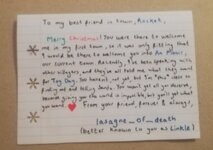 To my best friend in town, Rocket,
Merry Christmas! You were there to welcome
me in my first town, so it was only fitting that
I would be there to welcome you into An Manic,
our current town. Recently, I've been speaking with
other villagers, and they've all told me what they want
for Toy Day. You haven't, not yet, but I'm "this" close to
finding out and telling Santa. You might get all get deserved
rewards giving you the world is impossible, but you'll get what
you want. ❤ From your friend, forever & always,
lasagne_of_death
(better known to you as Linkle)